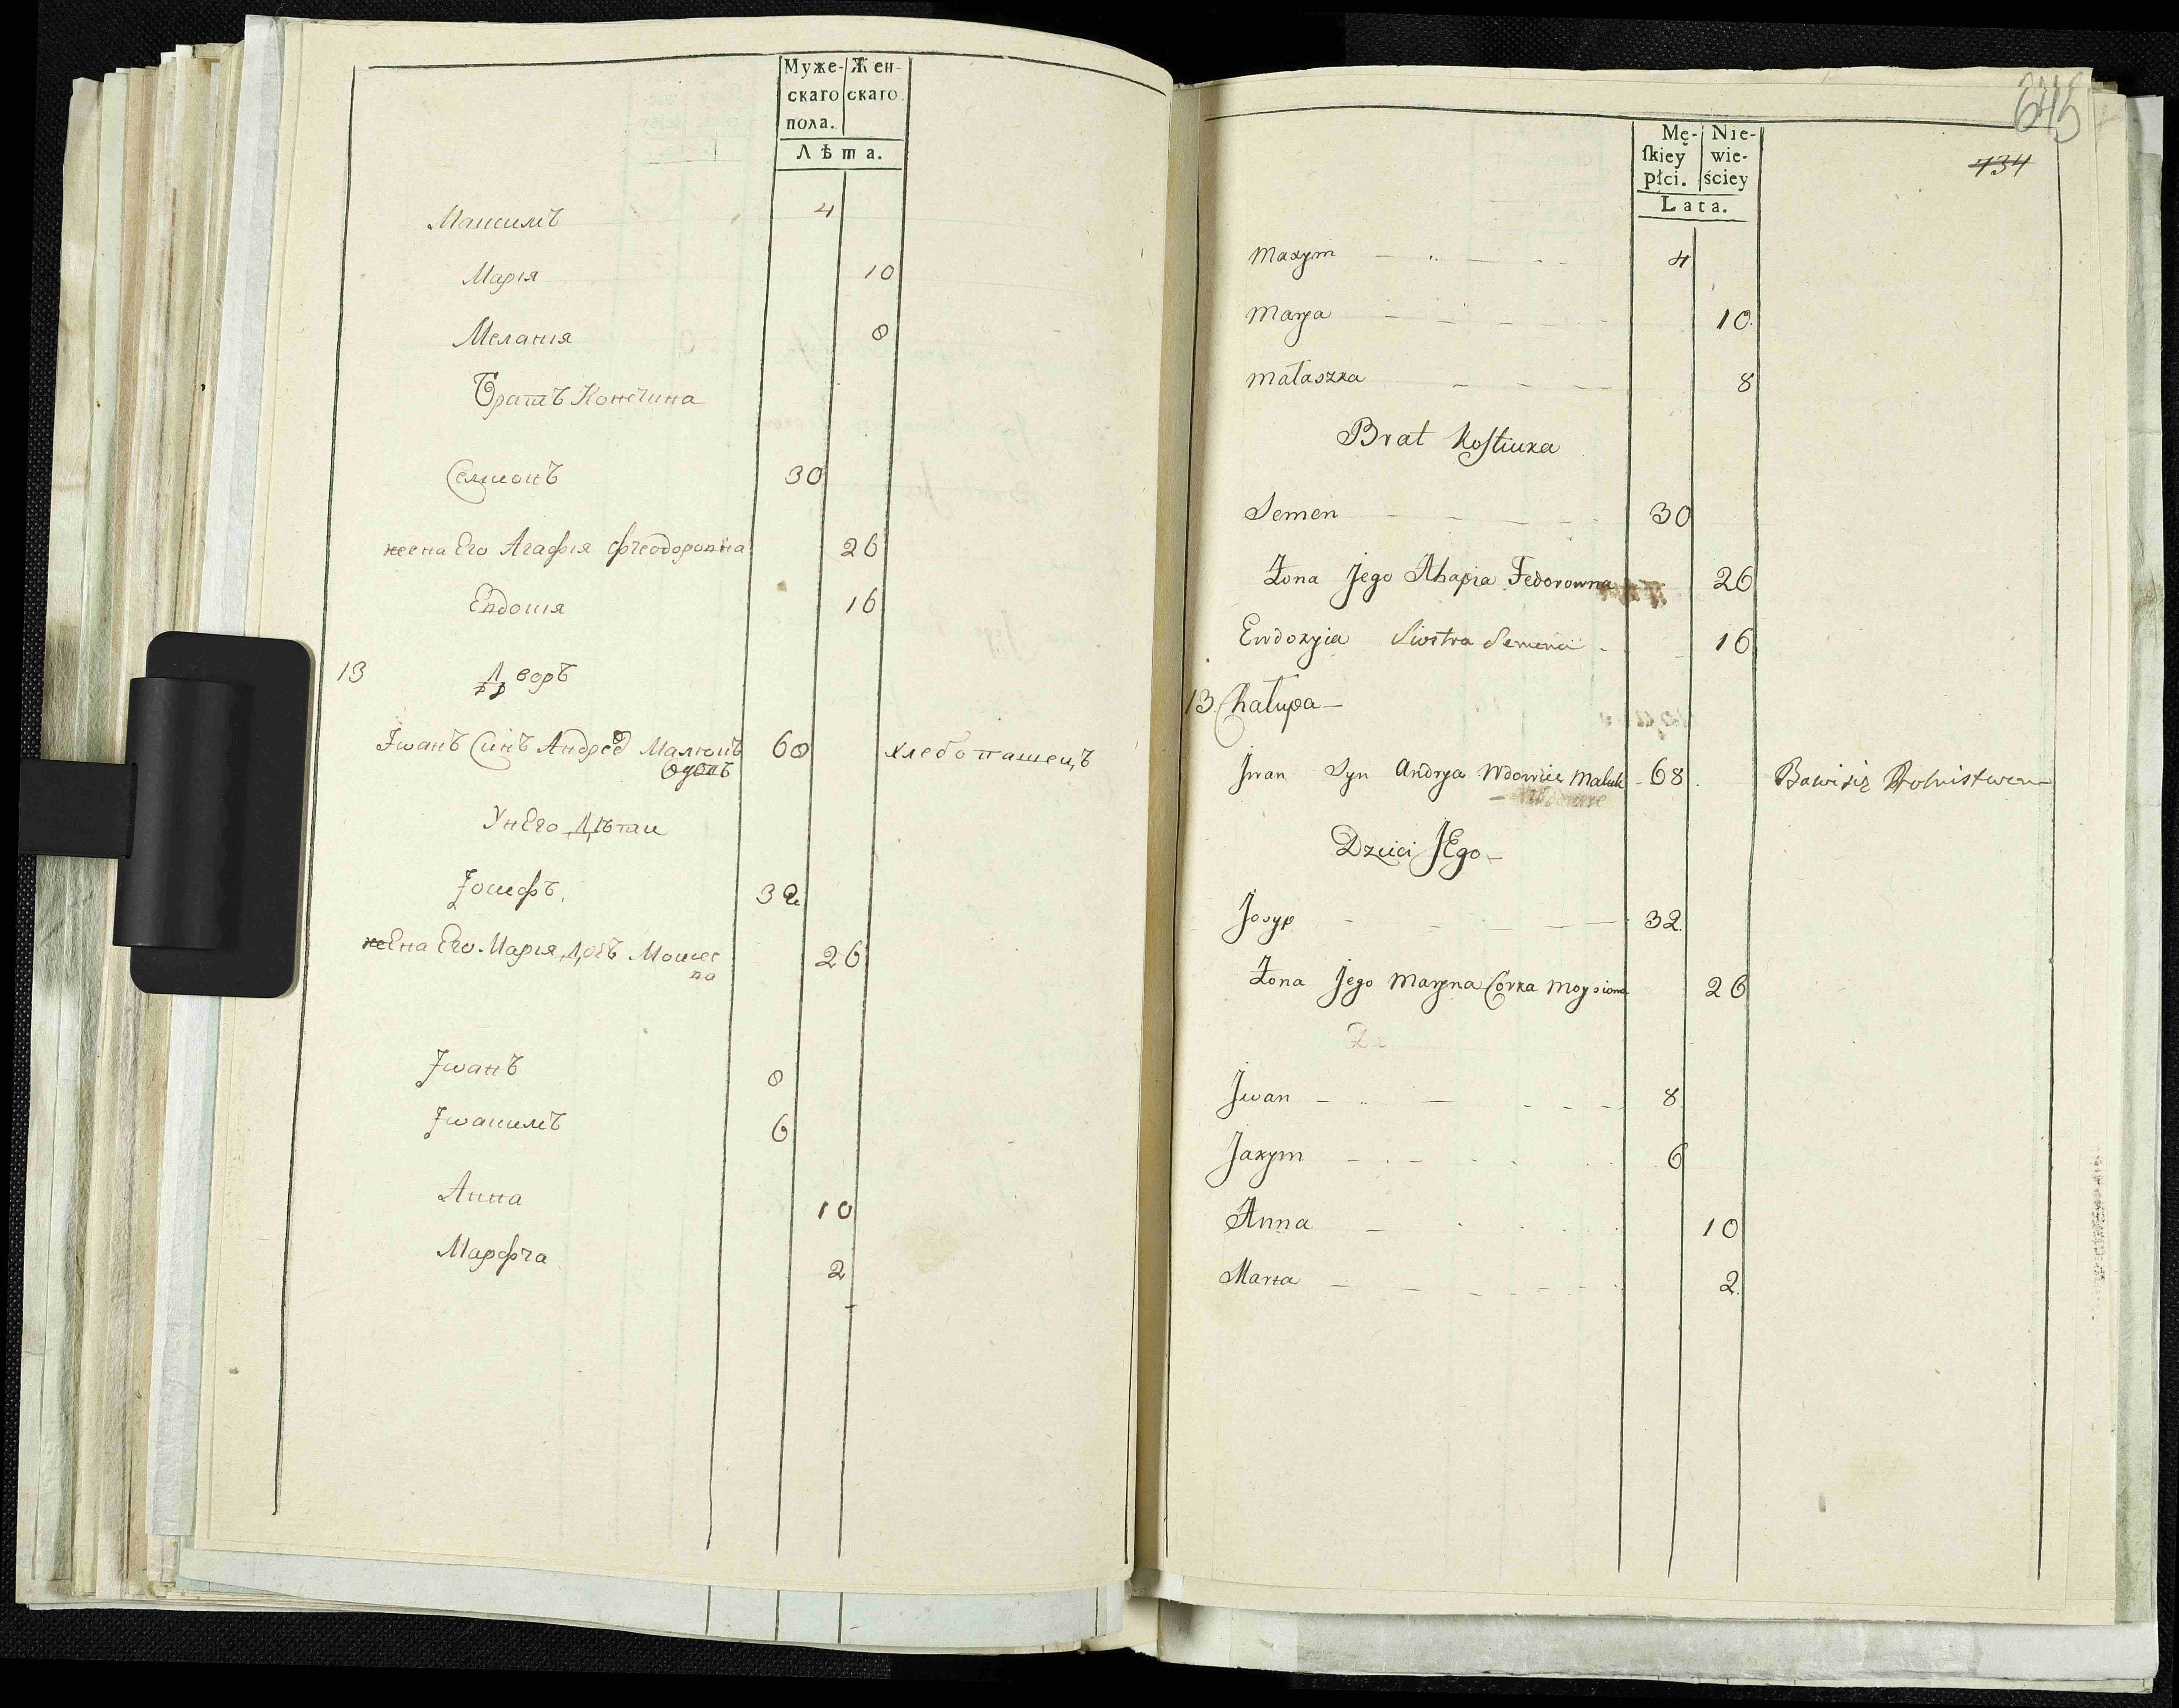 Муже- Жен-
скаго скаго.
пола.
Лѣта.
Максимъ 4
Марія 10
Меланія 8
Братъ Констина
Семионъ 30
жена Его Агафія Фчеодоровна 26
Евдошя 16
13 Дворъ
Іванъ Синъ Андрея Малюкъ 60 хлебопашецъ
УнЕго Дѣтаи
Іосифъ. 32
жена Его Марія, Дочь Моисее 26
ва
Іванъ 8
Івакимъ 6
Анна 10
Марфча 2
645
Mę- Nie-
skiey wie-
płci. ściey
434
Lata.
Maxym 4
Marya 10.
Małaszka 8
Brat Kostiuka
Semen 30
Żona Jego Ahapia Fedorowna 26
Ewdokyia Siostra Semena 16
13. Chałupa
Jwan Syn Andrya Wdowiec Maluk 68. Bawi się Rolnistwem
Dzieci JEgo
Josyp 32.
Żona Jego Maryna Corka Moysiona 26
Jwan 8.
Jakym 6
Anna 10
Marta 2.